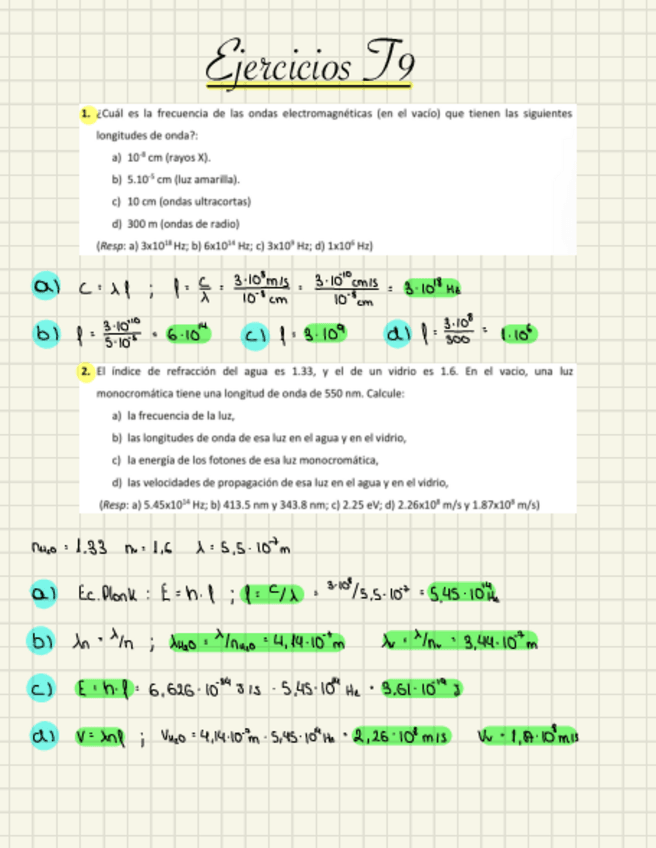 Ejercicios T9
1. ¿Cuál es la frecuencia de las ondas electromagnéticas (en el vacío) que tienen las siguientes
longitudes de onda?:
a) 10⁻⁸ cm (rayos X).
b) 5.10⁻⁵ cm (luz amarilla).
c) 10 cm (ondas ultracortas)
d) 300 m (ondas de radio)
(Resp: a) 3x10¹⁸ Hz; b) 6x10¹⁴ Hz; c) 3x10⁹ Hz; d) 1x10⁶ Hz)
a) c = λf ; f = c/λ = 3·10⁸ m/s / 10⁻⁸ cm = 3·10⁻¹⁰ cm/s / 10⁻⁸ cm = 3·10¹⁸ Hz
b) f = 3·10⁻¹⁰ / 5·10⁻⁵ = 6·10¹⁴ c) f = 3·10⁹ d) f = 3·10⁸ / 300 = 1·10⁶
2. El índice de refracción del agua es 1.33, y el de un vidrio es 1.6. En el vacio, una luz
monocromática tiene una longitud de onda de 550 nm. Calcule:
a) la frecuencia de la luz,
b) las longitudes de onda de esa luz en el agua y en el vidrio,
c) la energía de los fotones de esa luz monocromática,
d) las velocidades de propagación de esa luz en el agua y en el vidrio,
(Resp: a) 5.45x10¹⁴ Hz; b) 413.5 nm y 343.8 nm; c) 2.25 eV; d) 2.26x10⁸ m/s y 1.87x10⁸ m/s)
n_H₂O = 1.33 n_v = 1,6 λ = 5,5·10⁻⁷ m
a) Ec. Plank : E = h·f ; f = c/λ = 3·10⁸/5,5·10⁻⁷ = 5,45·10¹⁴ Hz
b) λn = λ/n ; λ_H₂O = λ/n_H₂O = 4,14·10⁻⁷ m λv = λ/nv = 3,44·10⁻⁷ m
c) E = h·f = 6,626·10⁻³⁴ J/s · 5,45·10¹⁴ Hz = 3,61·10⁻¹⁹ J
d) V = λnf ; V_H₂O = 4,14·10⁻⁷ m · 5,45·10¹⁴ Hz = 2,26·10⁸ m/s Vv = 1,87·10⁸ m/s